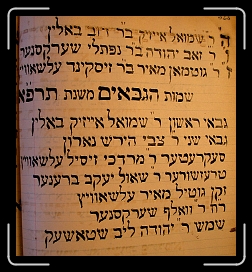 ה״ר שמואל אייזיק ב״ר דוב באלין
ר׳ זאב יהודה בר נפתלי שערקסנער
ר׳ גוטמאן מאיר בר זיסקינד עלשאוויץ
שמות הגבאים משנת תרפ״א
גבאי ראשון ר׳ שמואל אייזיק באלין
גבאי שני ר׳ צבי הירש נארון
סעקרעטער ר׳ מרדכי זיסיל עלשאוויץ
טרעזשורער ר׳ שאול יעקב ברענער
זקן גוטיל מאיר עלשאוויץ
רח׳ ר׳ וואלף שערקסנער
שמש ר׳ יהודה ליב שטאשעק